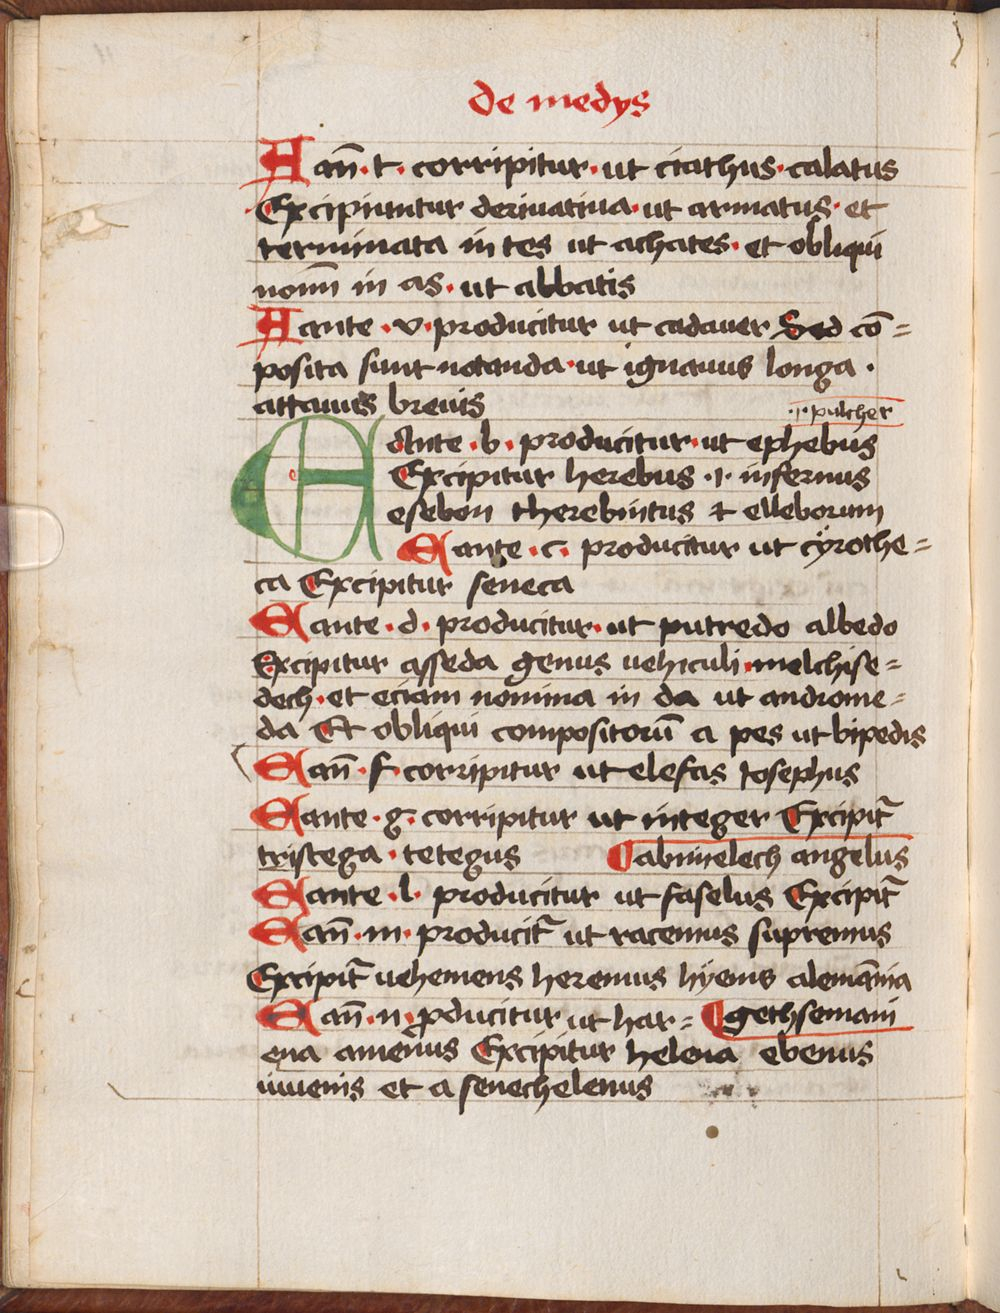 de medijs
A an̄ · t · corripitur · ut ciathus · calatus
Excipiuntur deriuatiua · ut armatus · et
terminata in tes ut achates · et obliqui
nom̄ in as · ut abbatis
A ante · v · producitur ut cadauer Sed cō=
posita sunt notanda · ut ignauus longa ·
attauus breuis
·i· pulcher
E Ante · b · producitur · ut ephebus
Excipitur herebus ·i· infernus
esebon therebintus et elleborum
E ante · c · producitur ut cyrothe=
ca Excipitur seneca
E ante · d · producitur · ut putredo albedo
Excipitur asseda genus uehiculi · melchise=
dech · et eciam nomina in da ut androme=
da Et obliqui compositorū a pes ut bipedis
E an̄ · f · corripitur ut elefas Iosephus
E ante · g · corripitur ut integer Excipit᷑
tristega · tetegus ¶ abimelech angelus
E ante · l · producitur ut faselus Excipit᷑
E an̄ · m · producit᷑ ut racemus supremus
Excipit᷑ uehemens heremus hyemis alemānia
E an̄ · n · ꝓducitur ut har= ¶ gethsemani
ena amenus Excipitur helena ebenus
iuuenis et a senechelenus